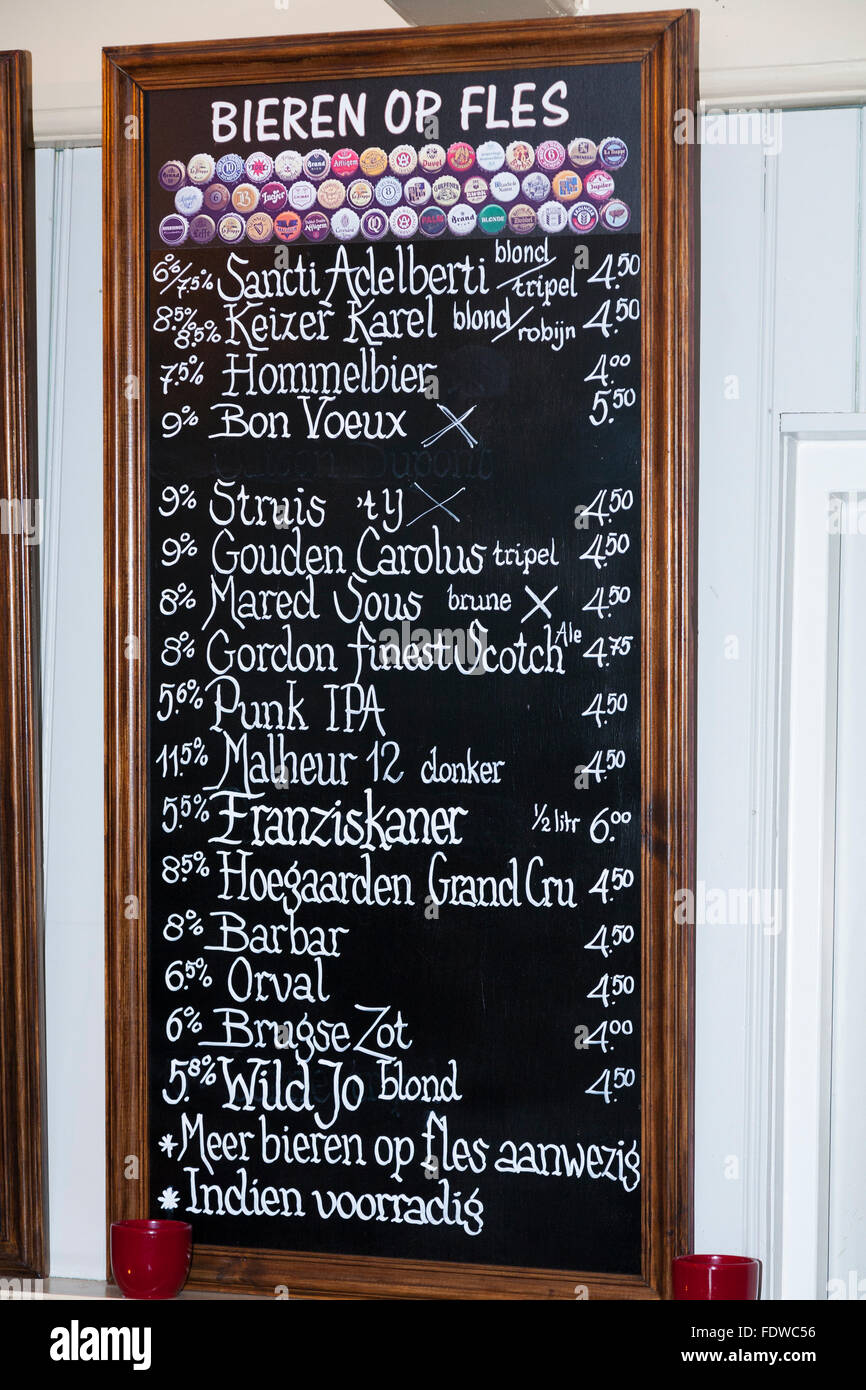 BIEREN OP FLES
6%/7.5% Sancti Adelberti blond/tripel 4.50
8.5% 8.5% Keizer Karel blond/robijn 4.50
7.5% Hommelbier 4.00
9% Bon Voeux X 5.50
9% Struis 't Y X 4.50
9% Gouden Carolus tripel 4.50
8% Mared Sous brune X 4.50
8% Gordon finest Scotch Ale 4.75
5.6% Punk IPA 4.50
11.5% Malheur 12 donker 4.50
5.5% Franziskaner 1/2 litr 6.00
8.5% Hoegaarden Grand Cru 4.50
8% Barbar 4.50
6.5% Orval 4.50
6% Brugse Zot 4.00
5.8% Wild Jo blond 4.50
*Meer bieren op fles aanwezig
*Indien voorradig
alamy stock photo
FDWC56
www.alamy.com